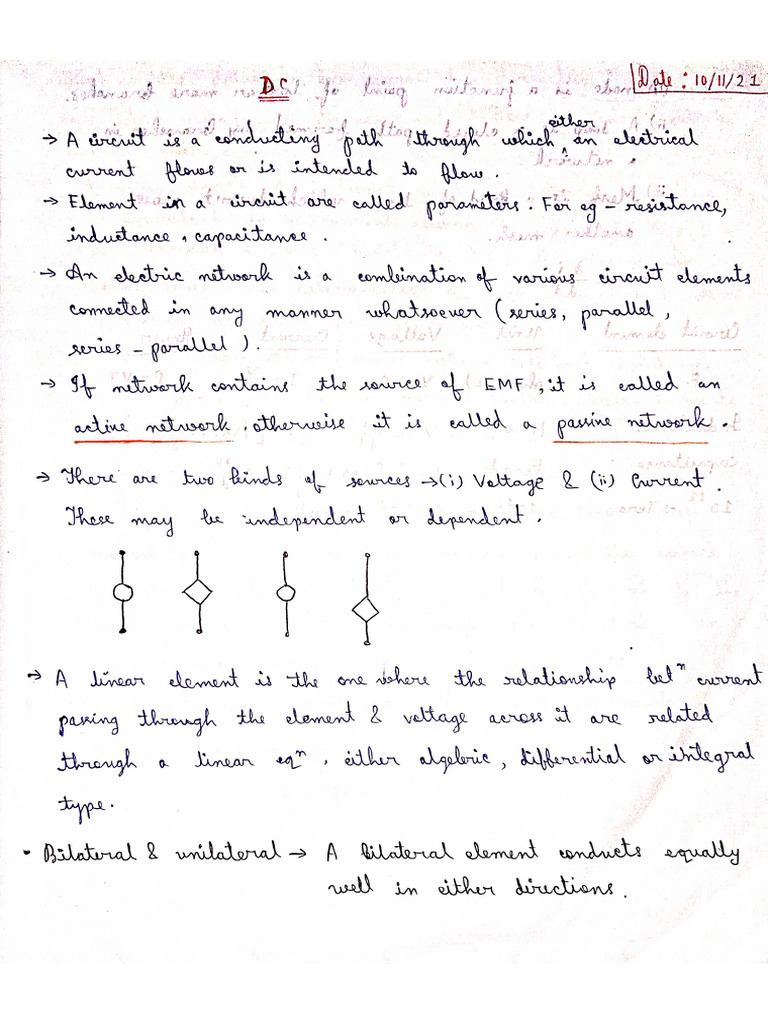 Date: 10/11/21
DC
→ A circuit is a conducting path through which either an electrical
current flows or is intended to flow.
→ Element in a circuit are called parameters. For eg - resistance,
inductance, capacitance.
→ An electric network is a combination of various circuit elements
connected in any manner whatsoever (series, parallel,
series - parallel).
→ If network contains the source of EMF, it is called an
active network, otherwise it is called a passive network.
→ There are two kinds of sources → (i) Voltage & (ii) Current.
These may be independent or dependent.
→ A linear element is the one where the relationship betⁿ current
passing through the element & voltage across it are related
through a linear eqⁿ, either algebric, differential or integral
type.
• Bilateral & unilateral → A bilateral element conducts equally
well in either directions.